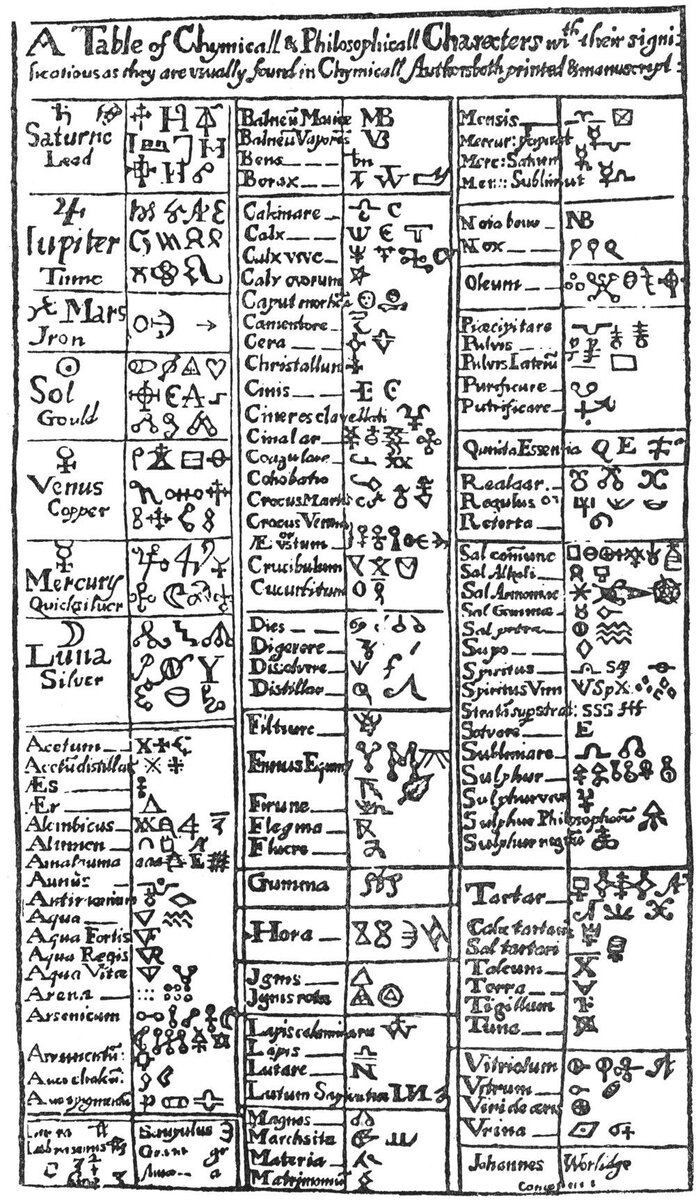 A Table of Chymicall & Philosophicall Charecters wth their signi=
fications as they are usually found in Chymicall Authors both printed & manuscript
Saturne
Lead
Iupiter
Tinne
Mars
Iron
Sol
Gould
Venus
Copper
Mercury
Quicksilver
Luna
Silver
Acetum
Æs
Ær
Alembicus
Alumen
Amalgama
Aqua
Aqua Fortis
Aqua Regis
Aqua Vitæ
Arena
Arsenicum
Scrupulus
Balneū Mariæ MB
Balneū Vaporis VB
Bene bn
Borax
Calcinare C
Calx
Calx vive
Calx ovorum
Caput mortuū
Cementare
Cera
Christallum
Cinis
Cineres clavellati
Cinabar
Coagulare
Cohobatio
Crocus Martis
Crocus Veneris
or
Æs ustum
Crucibulum
Cucurbitum
Dies
Digerere
Disolvere
Distillare
Filtrare
Equinus
Flegma
Gumma
Hora
Ignis
Ignis rotæ
Lapis calaminaris
Lapis
Lutare
Lutum Sapientiæ
Magnes
Marchsita
Materia
Matrimoniū
Mensis
Merc: Saturn
Mer:: Sublimat
Nota bene NB
Nox
Oleum
Præcipitare
Pulvis
Pulvis Laterū
Purificare
Putrificare
Quinta Essentia Q E
Realgar
Regulus
Retorta
Sal comune
Sal Alkali
Sal Armoniac
Sal Gemmæ
Sal petra
Sapo
Spiritus
Spiritus Vini
SSS
Solvere
Sublimare
Sulphur
Sulphur vive
Sulphur Philosophorū
Sulphur nigrū
Tartar
Calx tartari
Sal tartari
Talcum
Terra
Tigillum
Vitriolum
Vitrum
Viride æris
Urina
Johannes Worlidge